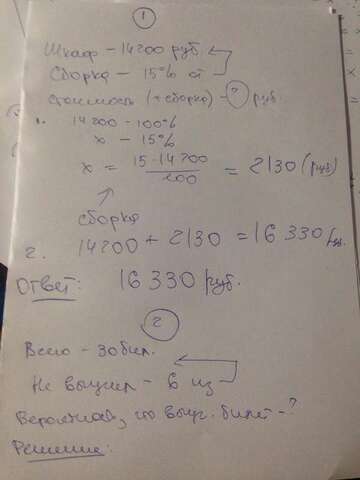 1
Шкаф - 14200 руб.
Сборка - 15% от
стоимость (+ сборка) - ? руб.
1. 14200 - 100%
х - 15%
х = 15·14200 / 100 = 2130 (руб)
сборка
2. 14200 + 2130 = 16 330 руб.
Ответ: 16 330 руб.
2
Всего - 30 бил.
Не выучил - 6 из
Вероятность, что выуч. билет - ?
Решение: